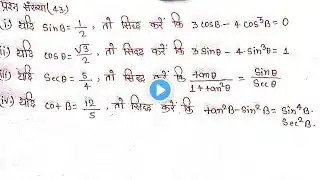 प्रश्न संख्या (43.)
(i) यदि SinB = 1/2, तो सिद्ध करें कि 3 cosB - 4 cos³B = 0
(ii) यदि cosθ = √3/2, तो सिद्ध करें कि 3 Sinθ - 4 Sin³θ = 1
(iii) यदि Secθ = 5/4, तो सिद्ध करें कि tanθ/1+tan²θ = Sinθ/Secθ
(iv) यदि cotB = 12/5, तो सिद्ध करें कि tan²B - Sin²B = Sin⁴B.
Sec²B.